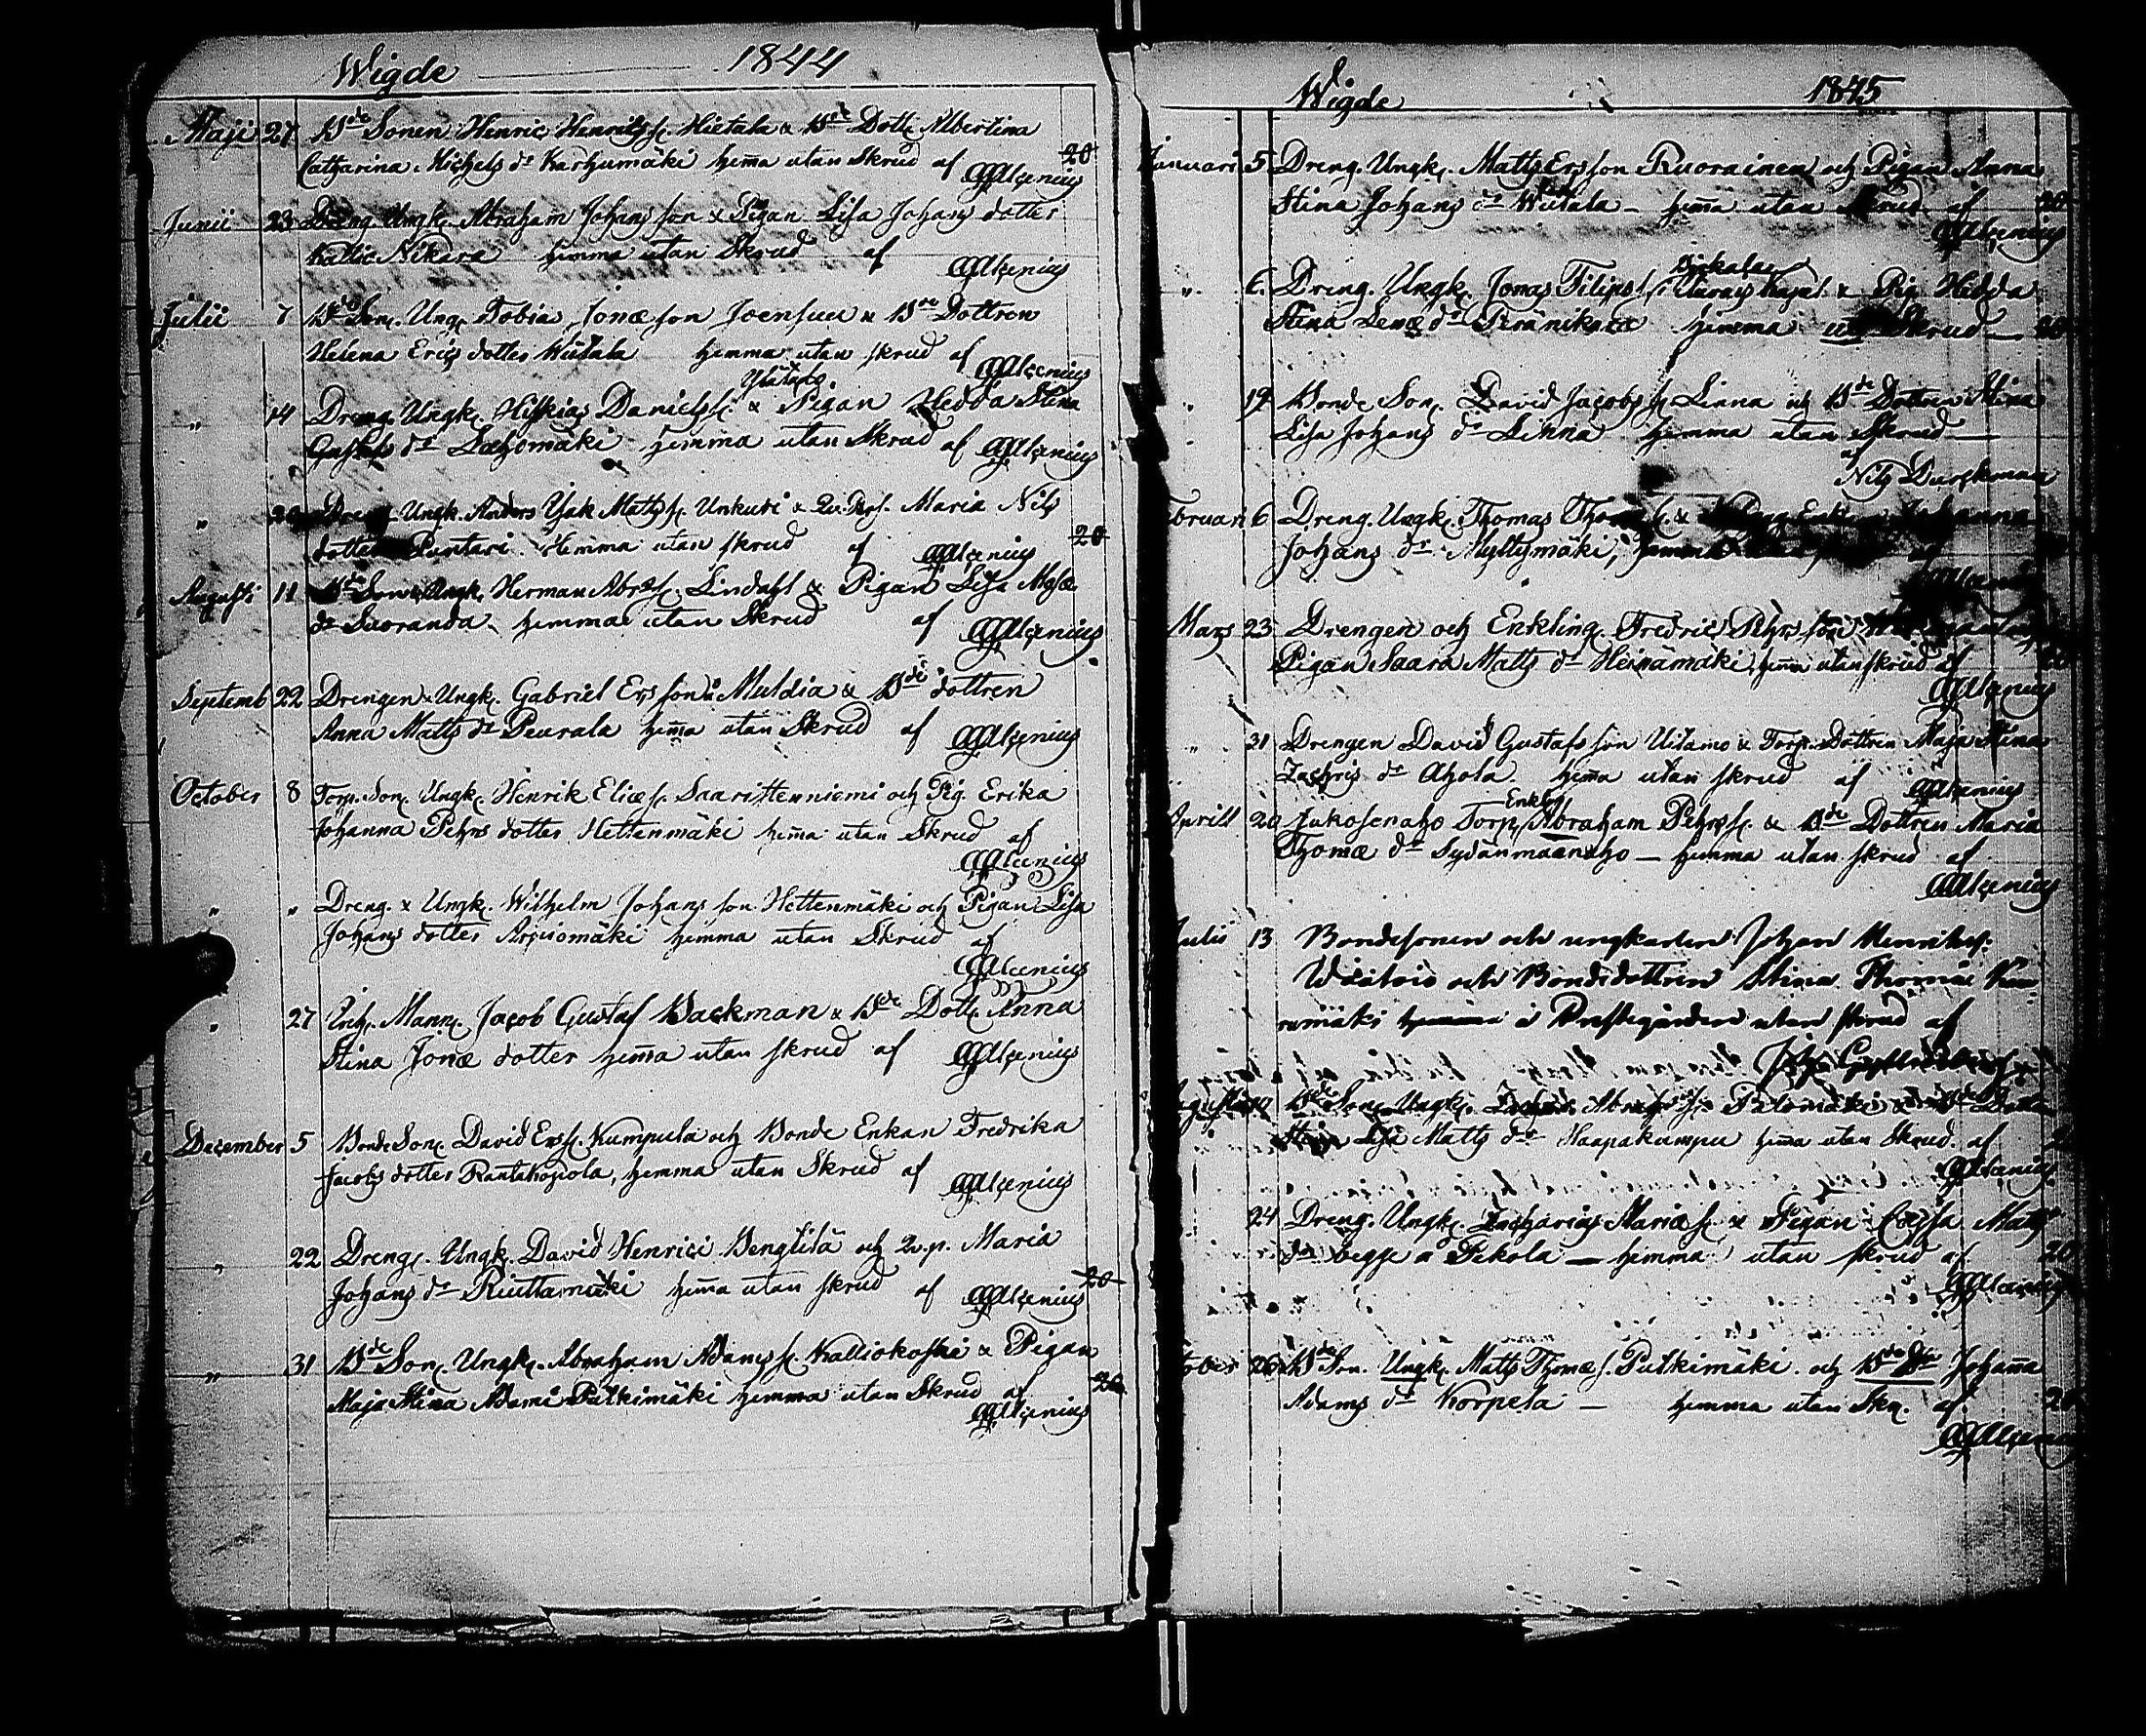 Wigde 1844
Maji 27 Bde Sonen Henric Henrikss. Hietala & Bde Dott. Albertina
Catharina Michels dr Karhumäki hem̄a utan Skrud af 20
AAlcenius
Junii 23 Dreng. Ungk. Abraham Johans son & Pigan Lisa Johans dotter
Kallio Nikara hemma utan Skrud af AAlcenius
Julii 7 Bde Son. Ung. Tobia Jonæ son Joensuu & Bde Dottren
Helena Erics dotter Wiitala hemma utan skrud af AAlcenius
Ylätalo
" 14 Dreng. Ungk. Hiskias Daniels s. & Pigan Hedda Stina
Gustafs dr Lazomäki hemma utan Skrud af AAlcenius
" Dreng Ungk. Anders Isak Matts s. Unkuri & Qv. Pers. Maria Nils
dotter Puntari hemma utan skrud af AAlcenius 20
Augusti 11 Bde Son. Ungk. Herman Abr. s. Lindahl & Pigan Lisa
dr Saoranda hemma utan Skrud af AAlcenius
Septemb 22 Drengen & Ungk. Gabriel Ers son Muldia & Bde dottren
Anna Matts dr Peurala hem̄a utan Skrud af AAlcenius
October 8 Torp. Son. Ungk. Henrik Eliæ s. Saaristenniemi och Pig. Erika
Johanna Pehrs dotter Hettenmäki hem̄a utan Skrud af
AAlcenius
" " Dreng. & Ungk. Wilhelm Johans son Hettenmäki och Pigan Lisa
Johans dotter Arpiomäki hemma utan Skrud af
AAlcenius
" 27 Jacob Gustaf Backman & Bde Dott. Anna
Stina Jonæ dotter hem̄a utan skrud af AAlcenius
December 5 Bonde Son. David Ers s. Kumpula och Bonde Enkan Fredrika
Jacobs dotter Rantakopola, hemma utan Skrud af AAlcenius
" 22 Dreng. Ungk. David Henrici Bengtilä och Qv.p. Maria
Johans dr Riuttamäki hem̄a utan skrud af AAlcenius 20
" 31 Bde Son. Ungk. Abraham Adams s. Kalliokoski & Pigan
Maja Stina Adami Pulkimäki hemma utan Skrud af 20
AAlcenius
Wigde 1845
Januari 5 Dreng. Ungk. Matts Ers son Ruorainen och Pigan Anna
Stina Johans dr Wiitala – hem̄a utan Skrud af 20
AAlcenius
" 6. Dreng. Ungk. Jonas Filips s. & Pig. Hedda
Stina Lenæ dr Peränikara hemma utan Skrud – 20
" 19 Bonde Son. David Jacobs s. Linna och Bde Dottren Stina
Lisa Johans dr Linna hemma utan Skrud –
af
Nils Durchman
Februari 6 Dreng. Ungk. Thomas &
Johans dr Myllymäki, hemma af
AAlcenius
Mars 23 Drengen och Enkling. Fredric Pehrs son
Pigan Saara Matts dr Heinämäki hem̄a utan skrud af
AAlcenius
" 31 Drengen David Gustafs son Uitamo & Torp. Dottren Maja Stina
Zachris dr Ahola hem̄a utan skrud af AAlcenius
Enkl.
April 20 Jukosenaho Torp. Abraham Pehrs s. & Bde Dottren Maria
Thomæ dr Sydänmaanaho – hemma utan skrud af
AAlcenius
Julii 13 Bondesonen och ungkarlen Johan Henriks s.
och Bondedottren Stina Thomæ
rumäki hemma i Prestegården utan skrud af
Bde Son. Ungk.
Lisa Matts dr Haapakumpu hem̄a utan Skrud af
AAlcenius
24 Dreng. Ungk. Zacharias Mariæ s. & Pigan Cajsa Matts
dr begge å Pekola – hemma utan skrud af 20
AAlcenius
tober 26 Bde Son. Ungk. Matts Thomæ s. Pulkimäki och Bde Dr Johan̄a
Adams dr Korpela – hemma utan Skr. af 20
AAlcenius